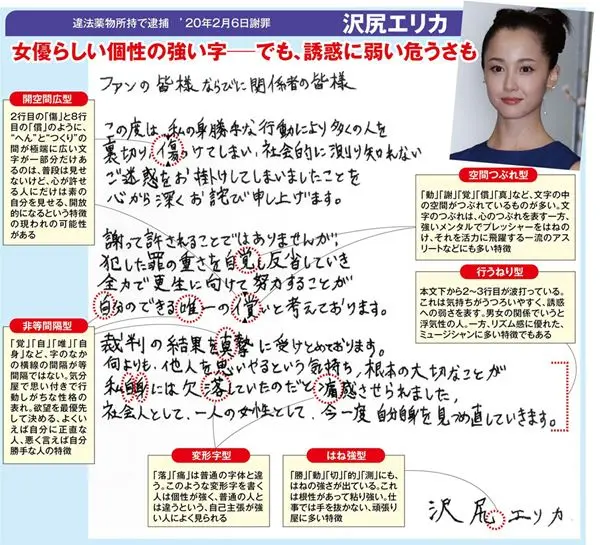 違法薬物所持で逮捕 '20年2月6日謝罪
沢尻エリカ
女優らしい個性の強い字──でも、誘惑に弱い危うさも
ファンの皆様ならびに関係者の皆様
この度は、私の身勝手な行動により多くの人を
裏切り、傷つけてしまい、社会的に測り知れない
ご迷惑をお掛けしてしまいましたことを
心から深くお詫び申し上げます。
謝って許されることではありませんが、
犯した罪の重さを自覚し反省していき
全力で更生に向けて努力することが
自分のできる唯一の償いと考えております。
裁判の結果を真摯に受けとめております。
何よりも、他人を思いやるという気持ち、根本の大切なことが
私自身には欠落していたのだと痛感させられました。
社会人として、一人の女性として、今一度自分自身を見つめ直していきます。
沢尻エリカ
開空間広型
2行目の「傷」と8行
目の「償」のように、
“へん”と“つくり”の
間が極端に広い文
字が一部分だけあ
るのは、普段は見
せないけど、心が許せ
る人にだけは素の
自分を見せる、開放
的になるという特徴
の現われの可能性
がある
非等間隔型
「覚」「自」「唯」「自
身」など、字のなか
の横線の間隔が等
間隔ではない。気分
屋で思い付きで行
動しがちな性格の
表れ。欲望を最優先
して決める、よくい
えば自分に正直な
人、悪く言えば自分
勝手な人の特徴
空間つぶれ型
「動」「謝」「覚」「償」「真」など、文字の中
の空間がつぶれているものが多い。文字
のつぶれは、心のつぶれを表す一方、
強いメンタルでプレッシャーをはねの
け、それを活力に飛躍する一流のアス
リートなどにも多い特徴
行うねり型
本文下から2～3行目が波打っている。
これは気持ちがうつろいやすく、誘惑
への弱さを表す。男女の関係でいうと
浮気性の人。一方、リズム感に優れた、
ミュージシャンに多い特徴でもある
変形字型
「落」「痛」は普通の字体と違
う。このような変形字を書く
人は個性が強く、普通の人と
は違うという、自己主張が強
い人によく見られる
はね強型
「勝」「動」「切」「的」「測」にも、
はねの強さが出ている。これ
は根性があって粘り強い。仕
事では手を抜かない、頑張り
屋に多い特徴